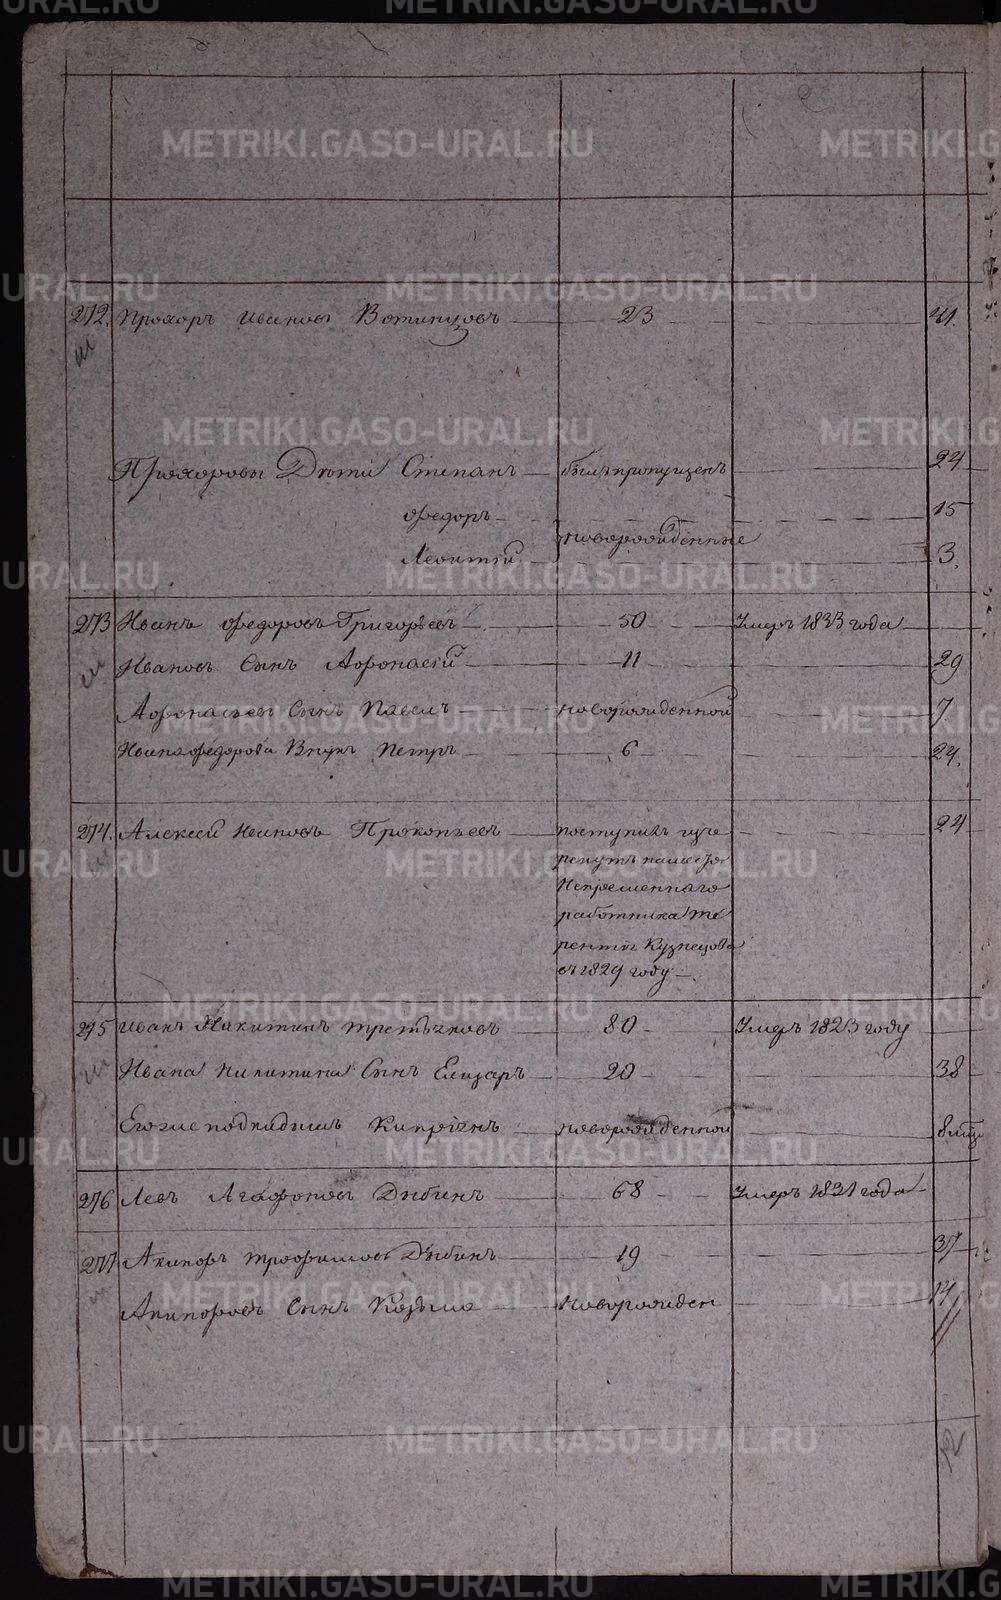 272. Прохоръ Ивановъ Вотинцовъ 23 41.
Прохоровы Дѣти Степанъ былъ пропущенъ 24
Федоръ 15
новорожденные
Леонтій 3.
273 Иванъ Федоровъ Григорьевъ 50 Умеръ 1833 года
Ивановъ Сынъ Афонасій 11 29
Афонасьевъ Сынъ Павелъ новорожденной 7.
Ивана Федорова Внукъ Петръ 6 24.
274. Алексей Ивановъ Прокопьевъ поступилъ изъ 24
рекрутъ наместо
Непременнаго
работника Те
рентія Кузнецова
въ 1829 году
275 Иванъ Никитинъ Третьяковъ 80 Умеръ 1823 году
Ивана Никитина Сынъ Елизаръ 20 38
Егоже подкидышъ Кипріянъ новорожденной
276 Левъ Агафоновъ Дыбинъ 68 Умеръ 1831 года
277 Никифоръ Трофимовъ Дыбинъ 19 37
Никифоровъ Сынъ Козьма новорожден 14
METRIKI.GASO-URAL.RU